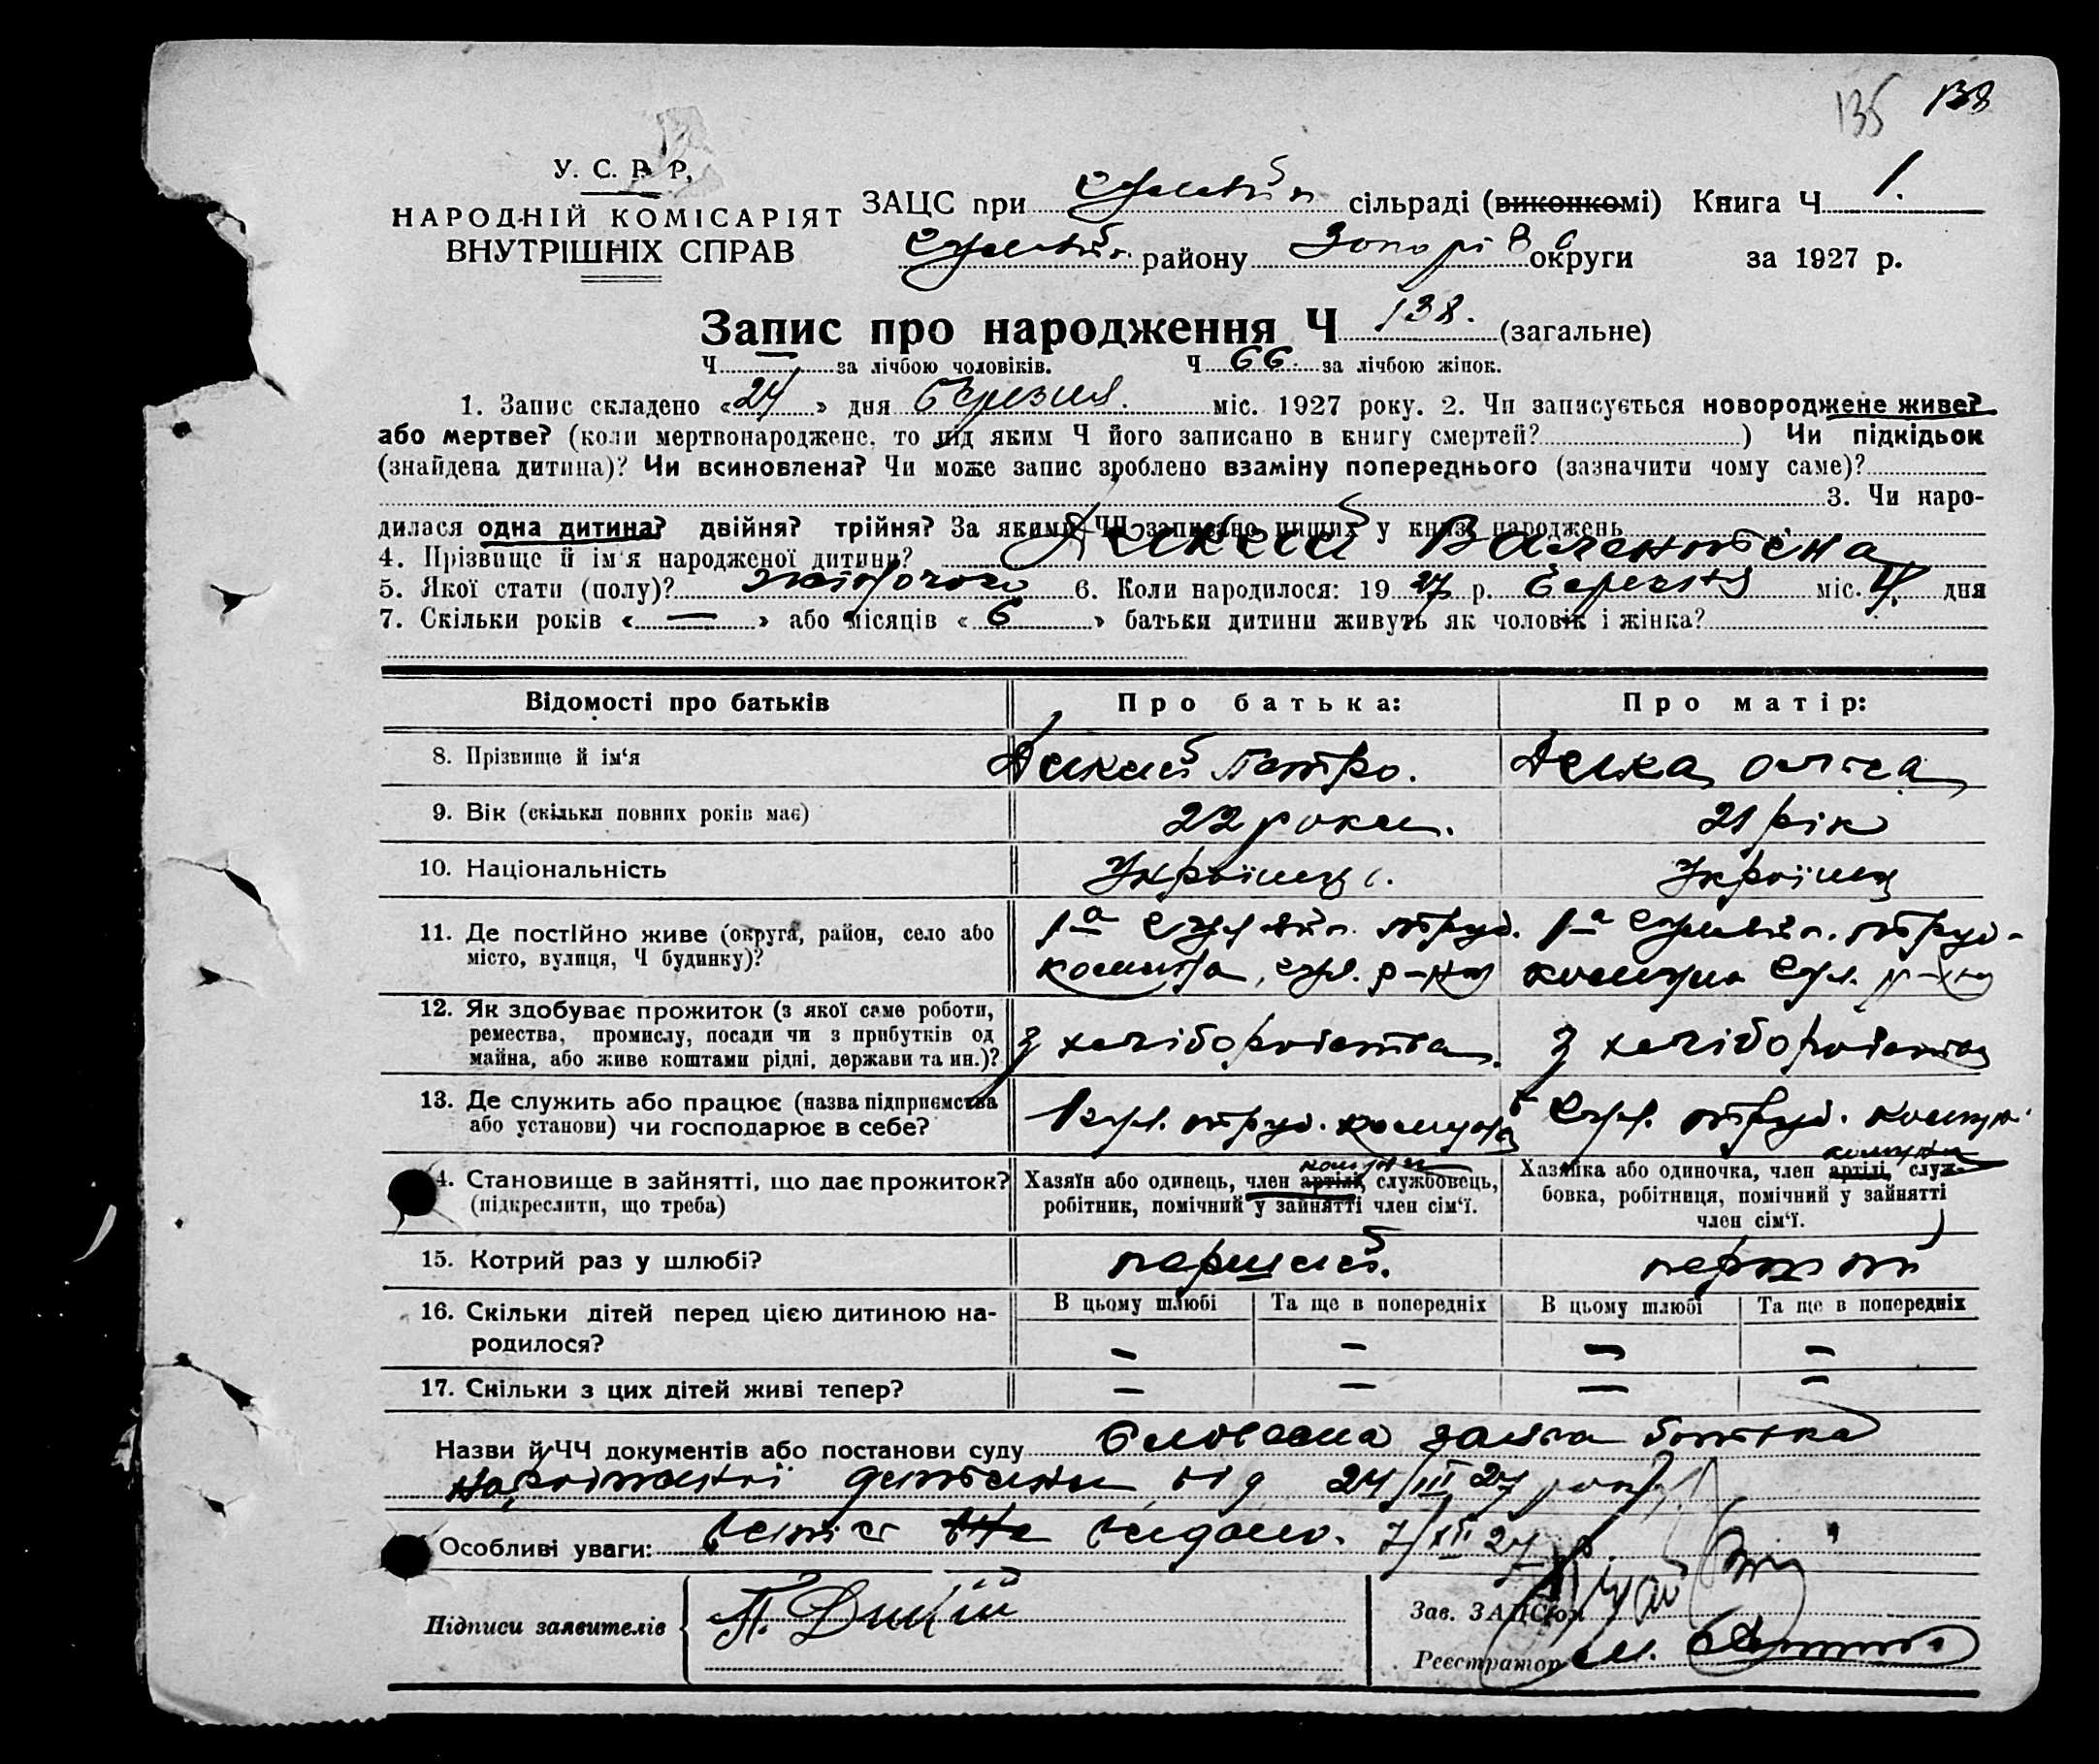 135 138
У. С. Р. Р,
НАРОДНІЙ КОМІСАРІЯТ
ВНУТРІШНІХ СПРАВ
ЗАЦС при сільраді (виконкомі) Книга Ч 1.
району Запоріз округи за 1927 р.
Запис про народження Ч 138. (загальне)
Ч — за лічбою чоловіків. Ч 66 за лічбою жінок.
1. Запис складено «24» дня березня міс. 1927 року. 2. Чи записується новороджене живе?
або мертве? (коли мертвонароджене, то під яким Ч його записано в книгу смертей? ) Чи підкідьок
(знайдена дитина)? Чи всиновлена? Чи може запис зроблено взаміну попереднього (зазначити чому саме)?
3. Чи наро-
дилася одна дитина? двійня? трійня? За якими ЧЧ записано инших у книзі народжень
4. Прізвище й ім'я народженої дитини? Дикий Валентина
5. Якої стати (полу)? жіночого 6. Коли народилося: 19 27 р. березня міс. дня
7. Скільки років «—» або місяців «6» батьки дитини живуть як чоловік і жінка?
Відомості про батьків Про батька: Про матір:
8. Прізвище й ім'я Дикий Петро. Дика Олєна
9. Вік (скільки повних років має) 22 роки. 21 рік
10. Національність Українець. Українц
11. Де постійно живе (округа, район, село або
місто, вулиця, Ч будинку)?
1а труд. 1а труд.
комуна, р-ну комуна р-ну
12. Як здобуває прожиток (з якої саме роботи,
ремества, промислу, посади чи з прибутків од
майна, або живе коштами рідні, держави та ин.)?
З хліборобства. З хліборобства
13. Де служить або працює (назва підприємства
або установи) чи господарює в себе?
труд. комуна труд. комун.
14. Становище в зайнятті, що дає прожиток?
(підкреслити, що треба)
комуни комуни
Хазяїн або одинець, член артілі, службовець,
робітник, помічний у зайнятті член сім'ї.
Хазяйка або одиночка, член артілі, служ-
бовка, робітниця, помічний у зайнятті
член сім'ї.
15. Котрий раз у шлюбі? перший. перший
16. Скільки дітей перед цією дитиною на-
родилося?
В цьому шлюбі Та ще в попередніх В цьому шлюбі Та ще в попередніх
— — — —
17. Скільки з цих дітей живі тепер? — — — —
Назви й ЧЧ документів або постанови суду Словесна заява батька
дитини від 24/III 27 року
Особливі уваги: видано. 27
Підписи заявителів П. Дикий
Зав. ЗАЦСом
Реєстратор М.